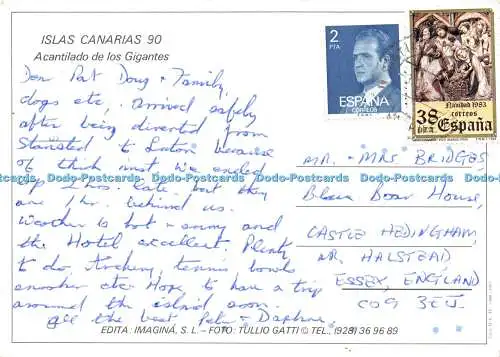 ISLAS CANARIAS 90
Acantilado de los Gigantes
Dear Pat Doug & Family,
dogs etc, arrived safely
after being diverted from
Stansted to Luton because
of thick mist we ended
up 2 hrs. late but they
are 1 hr. behind us.
Weather is hot & sunny and
the Hotel excellent. Plenty
to do, Archery, tennis, bowls
snooker etc Hope to have a trip
around the island soon.
All the best Pete & Daphne
2
PTA
ESPAÑA
CORREOS
Navidad 1983
correos
38
PTA
España
MR. & MRS BRIDGES
Blue Boar House,
CASTLE HEDINGHAM,
NR. HALSTEAD
ESSEX, ENGLAND
CO9 3EJ.
Dodo-Postcards Dodo-Postcards Dodo-Postcards Dodo-Postcards Dodo-Postcards
EDITA: IMAGINÁ, S. L. - FOTO: TULLIO GATTI © TEL., (928) 36 96 89